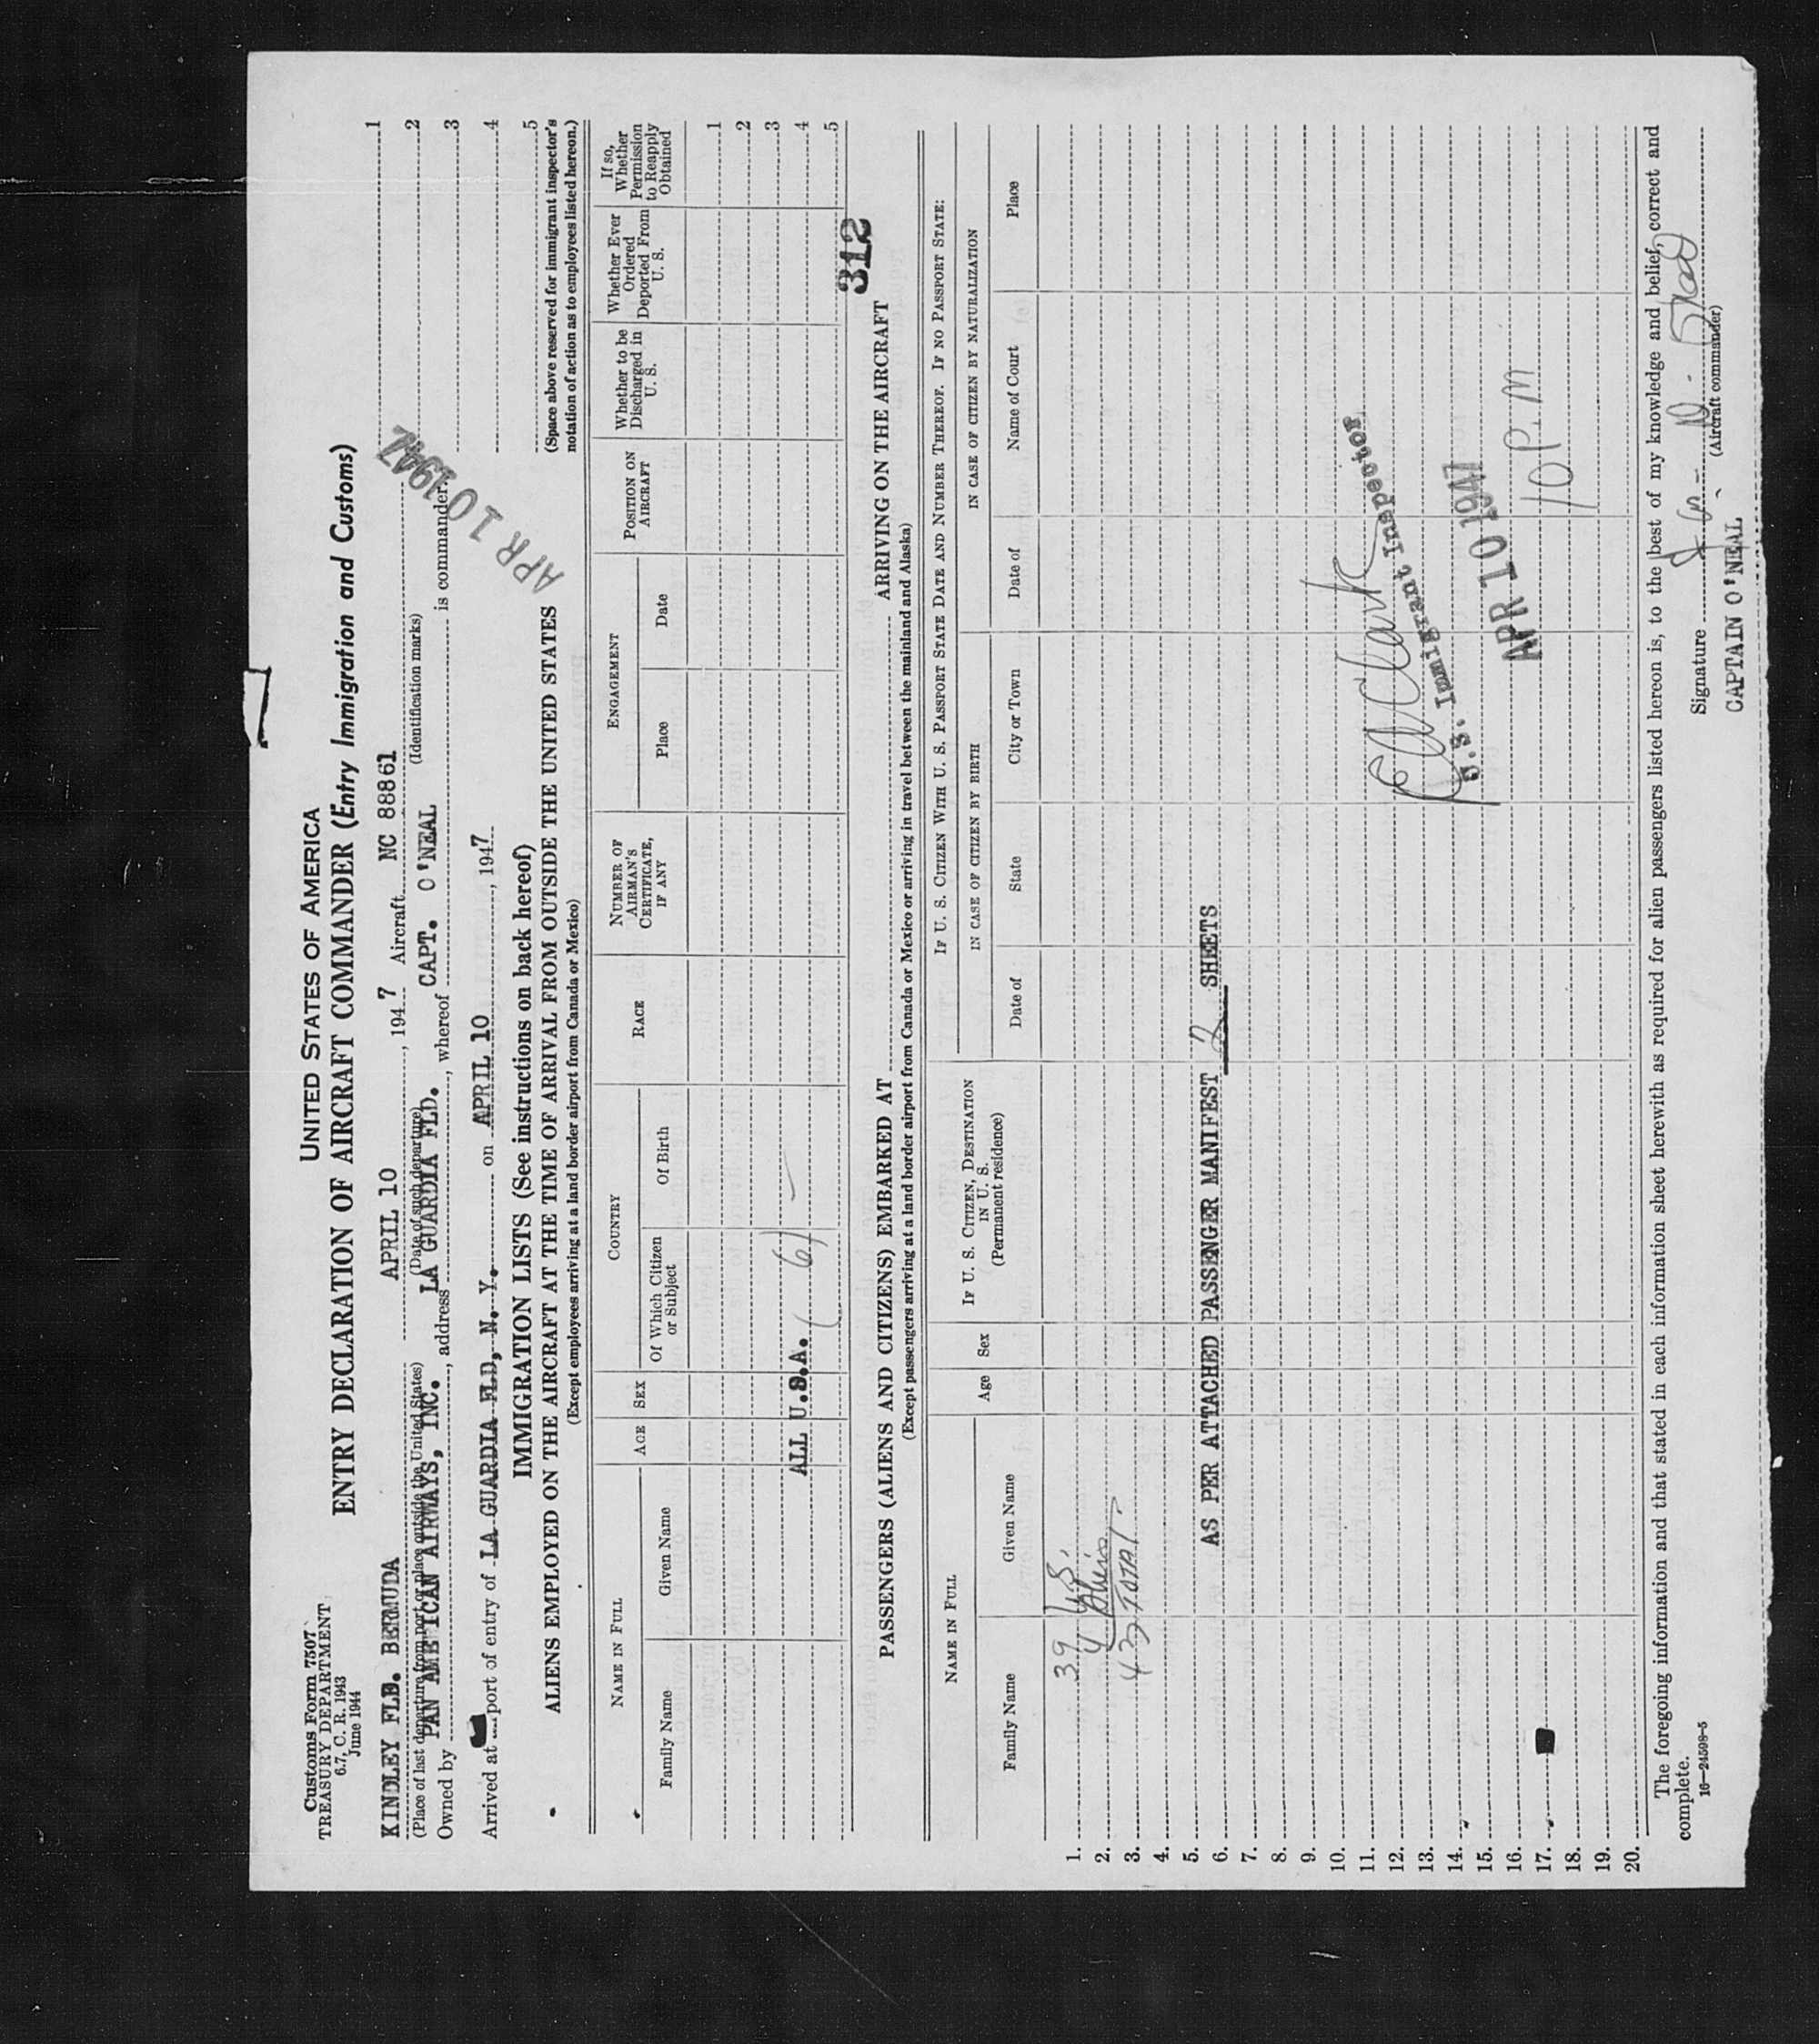 Customs Form 7507
TREASURY DEPARTMENT
6.7, C. R. 1943
June 1944
UNITED STATES OF AMERICA
ENTRY DECLARATION OF AIRCRAFT COMMANDER (Entry Immigration and Customs)
KINDLEY FLD. BERMUDA APRIL 10, 1947 Aircraft NC 88861
(Place of last departure from port or place outside the United States) (Date of such departure) (Identification marks)
Owned by PAN AMERICAN AIRWAYS, INC., address LA GUARDIA FLD., whereof CAPT. O'NEAL is commander.
Arrived at port of entry of LA GUARDIA FLD, N. Y. on APRIL 10, 1947
APR 10 1947
1
2
3
4
5
(Space above reserved for immigrant inspector's
notation of action as to employees listed hereon.)
IMMIGRATION LISTS (See instructions on back hereof)
ALIENS EMPLOYED ON THE AIRCRAFT AT THE TIME OF ARRIVAL FROM OUTSIDE THE UNITED STATES
(Except employees arriving at a land border airport from Canada or Mexico)
NAME IN FULL
Family Name Given Name
AGE
SEX
COUNTRY
Of Which Citizen or Subject Of Birth
RACE
NUMBER OF AIRMAN'S CERTIFICATE, IF ANY
ENGAGEMENT
Place Date
POSITION ON AIRCRAFT
Whether to be Discharged in U. S.
Whether Ever Ordered Deported From U. S.
If so, Whether Permission to Reapply Obtained
1
2
3
4
5
ALL U.S.A. (6)
312
PASSENGERS (ALIENS AND CITIZENS) EMBARKED AT ARRIVING ON THE AIRCRAFT
(Except passengers arriving at a land border airport from Canada or Mexico or arriving in travel between the mainland and Alaska)
NAME IN FULL
Family Name Given Name
Age
Sex
IF U. S. CITIZEN, DESTINATION IN U. S.
(Permanent residence)
IF U. S. CITIZEN WITH U. S. PASSPORT STATE DATE AND NUMBER THEREOF. IF NO PASSPORT STATE:
IN CASE OF CITIZEN BY BIRTH
IN CASE OF CITIZEN BY NATURALIZATION
Date of State City or Town Date of Name of Court Place
1. 39 U.S.
2. 4 Aliens
3. 43 TOTAL
4.
5.
6. AS PER ATTACHED PASSENGER MANIFEST 2 SHEETS
7.
8.
9.
10.
11.
12.
13.
14.
15.
16.
17.
18.
19.
20.
Clark
U.S. Immigrant Inspector
APR 10 1947
10 P.M
The foregoing information and that stated in each information sheet herewith as required for alien passengers listed hereon is, to the best of my knowledge and belief, correct and
complete.
16—24598-5
Signature
(Aircraft commander)
CAPTAIN O'NEAL